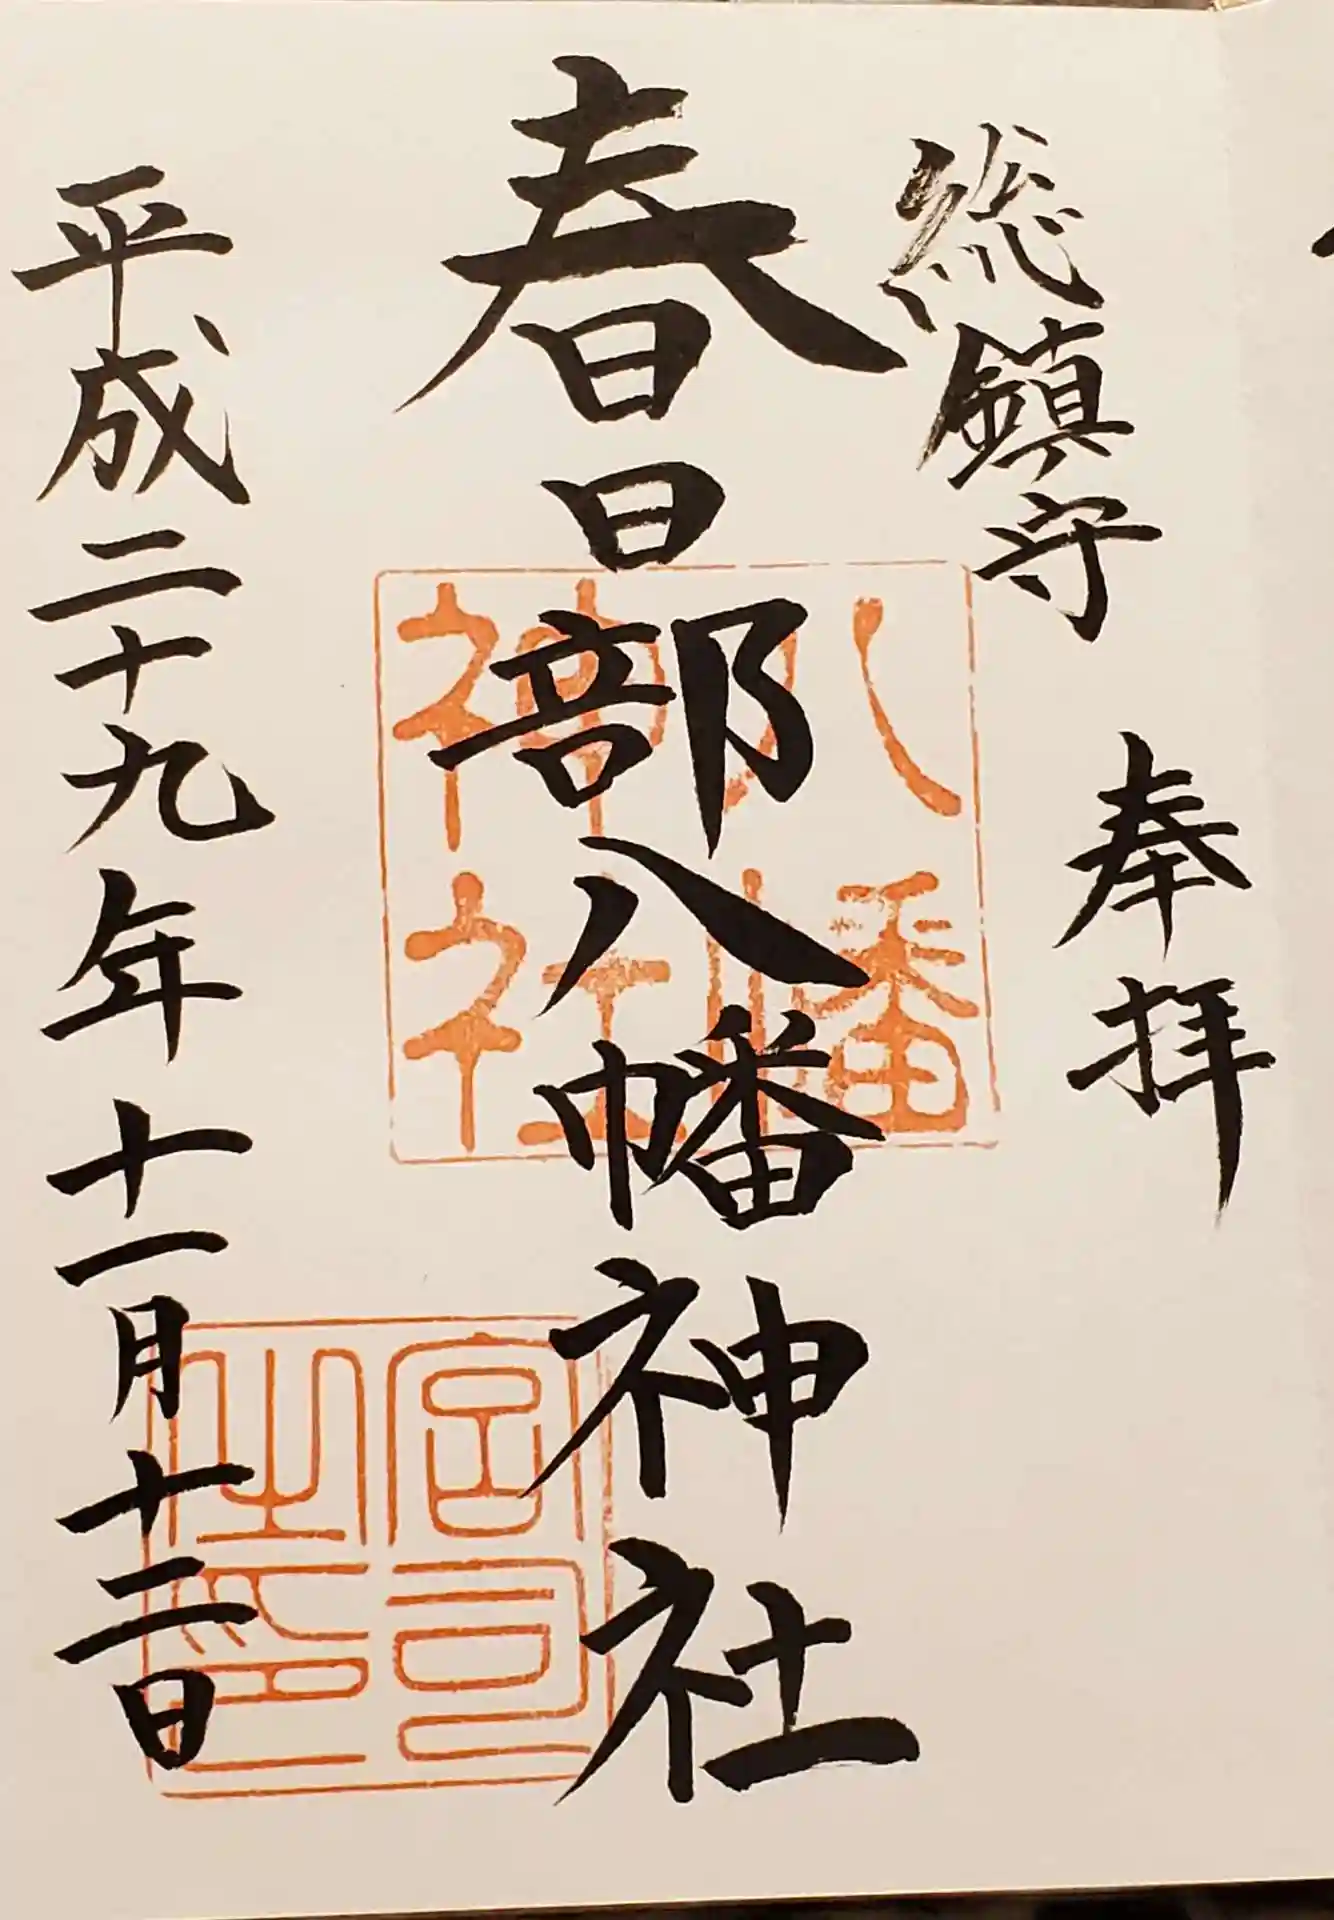 奉拝
総鎮守
春日部八幡神社
平成二十九年十一月十二日
八幡
神社
宮司
之印